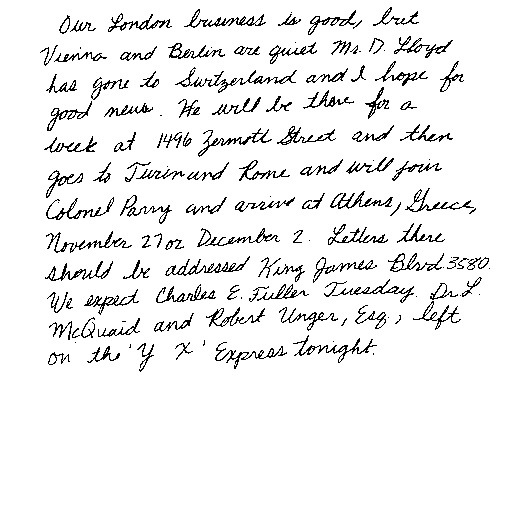 Our London business is good, but
Vienna and Berlin are quiet Mr. D. Lloyd
has gone to Switzerland and I hope for
good news. He will be there for a
week at 1496 Zermott Street and then
goes to Turin and Rome and will join
Colonel Parry and arrive at Athens, Greece,
November 27 or December 2. Letters there
should be addressed King James Blvd. 3580.
We expect Charles E. Fuller Tuesday. Dr. L.
McQuaid and Robert Unger, Esq., left
on the 'Y X' Express tonight.